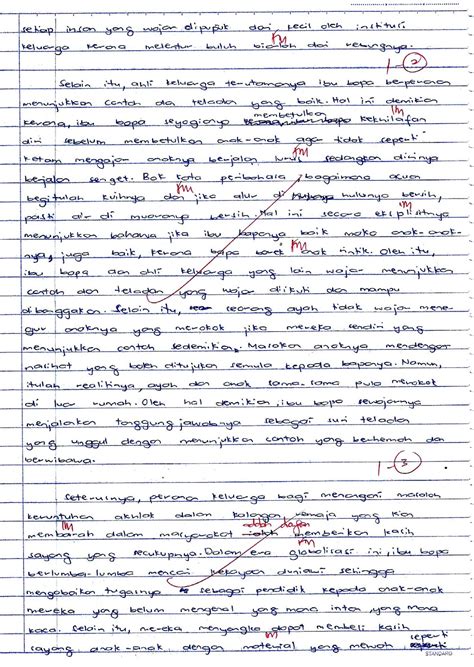 setiap insan yang wajar dipupuk dari kecil oleh institusi
keluarga kerana melentur buluh biarlah dari rebungnya.
IM
1-②
Selain itu, ahli keluarga terutamanya ibu bapa berperanan
menunjukkan contoh dan teladan yang baik. Hal ini demikian
membetulkan
IM
kerana, ibu bapa seyogianya kekhilafan
diri sebelum membetulkan anak-anak agar tidak seperti
ketam mengajar anaknya berjalan lurus sedangkan dirinya
IM
berjalan senget. Bak kata peribahasa, bagaimana acuan
begitulah kuihnya dan jika alur di hulunya bersih,
IM
IM
pasti air di muaranya bersih. Hal ini secara eksplisitnya
menunjukkan bahawa jika ibu bapanya baik maka anak-anak-
nya, juga baik, kerana bapa borek anak rintik. Oleh itu,
IM
ibu bapa dan ahli keluarga yang lain wajar menunjukkan
contoh dan teladan yang wajar diikuti dan mampu
dibanggakan. Selain itu, seorang ayah tidak wajar mene-
gur anaknya yang merokok jika mereka sendiri yang
menunjukkan contoh sedemikian. Masakan anaknya mendengar
nasihat yang boleh ditujukan semula kepada bapanya. Namun,
itulah realitinya, ayah dan anak sama-sama pula merokok
di luar rumah. Oleh hal demikian, ibu bapa sewajarnya
menjalankan tanggungjawabnya sebagai suri teladan
yang unggul dengan menunjukkan contoh yang berhemah dan
berwibawa.
1-③
Seterusnya, peranan keluarga bagi menangani masalah
keruntuhan akhlak dalam kalangan remaja yang kian
IM
adalah dengan
membarah dalam masyarakat memberikan kasih
IM
sayang yang secukupnya. Dalam era globalisasi ini, ibu bapa
berlumba-lumba mencari kekayaan duniawi sehingga
mengabaikan tugasnya sebagai pendidik kepada anak-anak
mereka yang belum mengenal yang mana intan yang mana
kaca. Selain itu, mereka menyangka dapat membeli kasih
IM
seperti
sayang anak-anak dengan material yang mewah
STANDARD